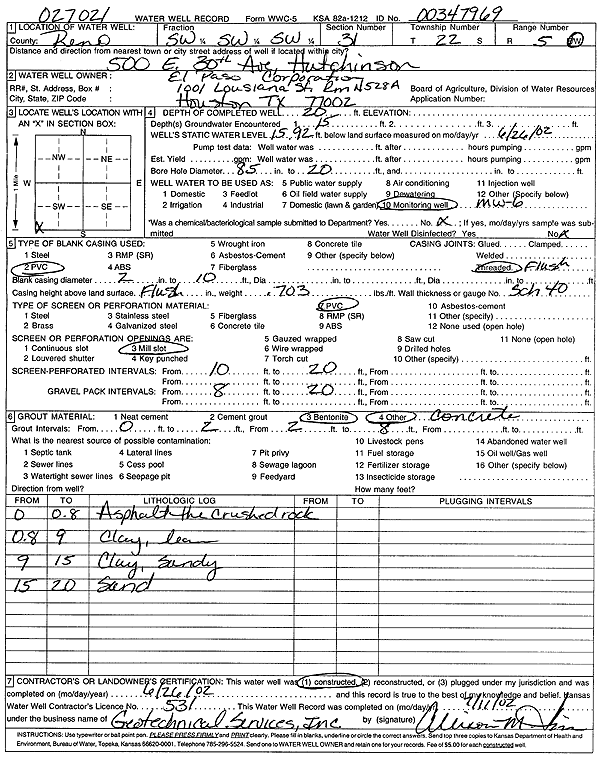 027021 WATER WELL RECORD Form WWC-5 KSA 82a-1212 ID No. 00347969
1 LOCATION OF WATER WELL: Fraction Section Number Township Number Range Number
County: Reno SW ¼ SW ¼ SW ¼ 31 T 22 S R 5 E/W
Distance and direction from nearest town or city street address of well if located within city?
500 E. 30th Ave, Hutchinson
2 WATER WELL OWNER: El Paso Corporation
RR#, St. Address, Box # : 1001 Lousiana St. Rm N528A Board of Agriculture, Division of Water Resources
City, State, ZIP Code : Houston TX 77002 Application Number:
3 LOCATE WELL'S LOCATION WITH AN "X" IN SECTION BOX:
N
NW NE
W E
SW SE
X
S
1 Mile
4 DEPTH OF COMPLETED WELL 20 ft. ELEVATION:
Depth(s) Groundwater Encountered 1 15 ft. 2 ft. 3 ft.
WELL'S STATIC WATER LEVEL 15.92 ft. below land surface measured on mo/day/yr 6/26/02
Pump test data: Well water was ft. after hours pumping gpm
Est. Yield gpm: Well water was ft. after hours pumping gpm
Bore Hole Diameter 8.5 in. to 20 ft., and in. to ft.
WELL WATER TO BE USED AS: 5 Public water supply 8 Air conditioning 11 Injection well
1 Domestic 3 Feedlot 6 Oil field water supply 9 Dewatering 12 Other (Specify below)
2 Irrigation 4 Industrial 7 Domestic (lawn & garden) 10 Monitoring well MW-6
Was a chemical/bacteriological sample submitted to Department? Yes No X ; If yes, mo/day/yrs sample was submitted Water Well Disinfected? Yes No X
5 TYPE OF BLANK CASING USED: 5 Wrought iron 8 Concrete tile CASING JOINTS: Glued Clamped
1 Steel 3 RMP (SR) 6 Asbestos-Cement 9 Other (specify below) Welded
2 PVC 4 ABS 7 Fiberglass Threaded Flush
Blank casing diameter 2 in. to 10 ft., Dia in. to ft., Dia in. to ft.
Casing height above land surface Flush in., weight .703 lbs./ft. Wall thickness or gauge No. Sch 40
TYPE OF SCREEN OR PERFORATION MATERIAL: 7 PVC 10 Asbestos-cement
1 Steel 3 Stainless steel 5 Fiberglass 8 RMP (SR) 11 Other (specify)
2 Brass 4 Galvanized steel 6 Concrete tile 9 ABS 12 None used (open hole)
SCREEN OR PERFORATION OPENINGS ARE: 5 Gauzed wrapped 8 Saw cut 11 None (open hole)
1 Continuous slot 3 Mill slot 6 Wire wrapped 9 Drilled holes
2 Louvered shutter 4 Key punched 7 Torch cut 10 Other (specify) ft.
SCREEN-PERFORATED INTERVALS: From 10 ft. to 20 ft., From ft. to ft.
From ft. to ft., From ft. to ft.
GRAVEL PACK INTERVALS: From 8 ft. to 20 ft., From ft. to ft.
From ft. to ft., From ft. to ft.
6 GROUT MATERIAL: 1 Neat cement 2 Cement grout 3 Bentonite 4 Other Concrete
Grout Intervals: From 0 ft. to 2 ft., From 2 ft. to 8 ft., From ft. to ft.
What is the nearest source of possible contamination: 10 Livestock pens 14 Abandoned water well
1 Septic tank 4 Lateral lines 7 Pit privy 11 Fuel storage 15 Oil well/Gas well
2 Sewer lines 5 Cess pool 8 Sewage lagoon 12 Fertilizer storage 16 Other (specify below)
3 Watertight sewer lines 6 Seepage pit 9 Feedyard 13 Insecticide storage
Direction from well? How many feet?
FROM TO LITHOLOGIC LOG FROM TO PLUGGING INTERVALS
0 0.8 Asphalt the crushed rock
0.8 9 Clay, lean
9 15 Clay, sandy
15 20 Sand
7 CONTRACTOR'S OR LANDOWNER'S CERTIFICATION: This water well was (1) constructed, (2) reconstructed, or (3) plugged under my jurisdiction and was
completed on (mo/day/year) 6/26/02 and this record is true to the best of my knowledge and belief. Kansas
Water Well Contractor's Licence No. 531 This Water Well Record was completed on (mo/day/yr)
under the business name of Geotechnical Services, Inc. by (signature)
INSTRUCTIONS: Use typewriter or ball point pen. PLEASE PRESS FIRMLY and PRINT clearly. Please fill in blanks, underline or circle the correct answers. Send top three copies to Kansas Department of Health and
Environment, Bureau of Water, Topeka, Kansas 66620-0001. Telephone 785-296-5524. Send one to WATER WELL OWNER and retain one for your records. Fee of $5.00 for each constructed well.